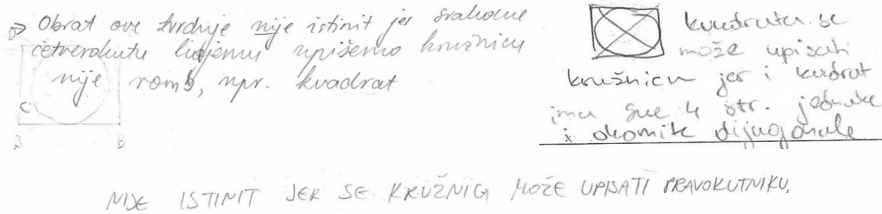 ⇒ Obrat ove tvrdnje nije istinit jer svakome
četverokutu kojemu upišemo kružnicu
nije romb, npr. kvadrat
C
A B
kvadratu se
može upisati
krušnica jer i kvadrat
ima sve 4 str. jednake
i okomite dijagonale
NIJE ISTINIT JER SE KRUŽNICA MOŽE UPISATI PRAVOKUTNIKU.